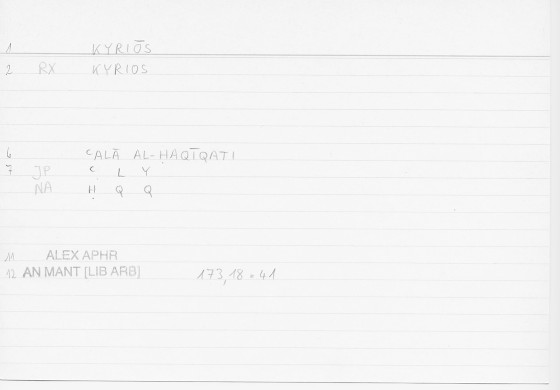 1 KYRIŌS
2 RX KYRIOS
6 ʿALĀ AL-ḤAQĪQATI
7 JP ʿ L Y
NA Ḥ Q Q
11 ALEX APHR
12 AN MANT [LIB ARB] 173,18.41